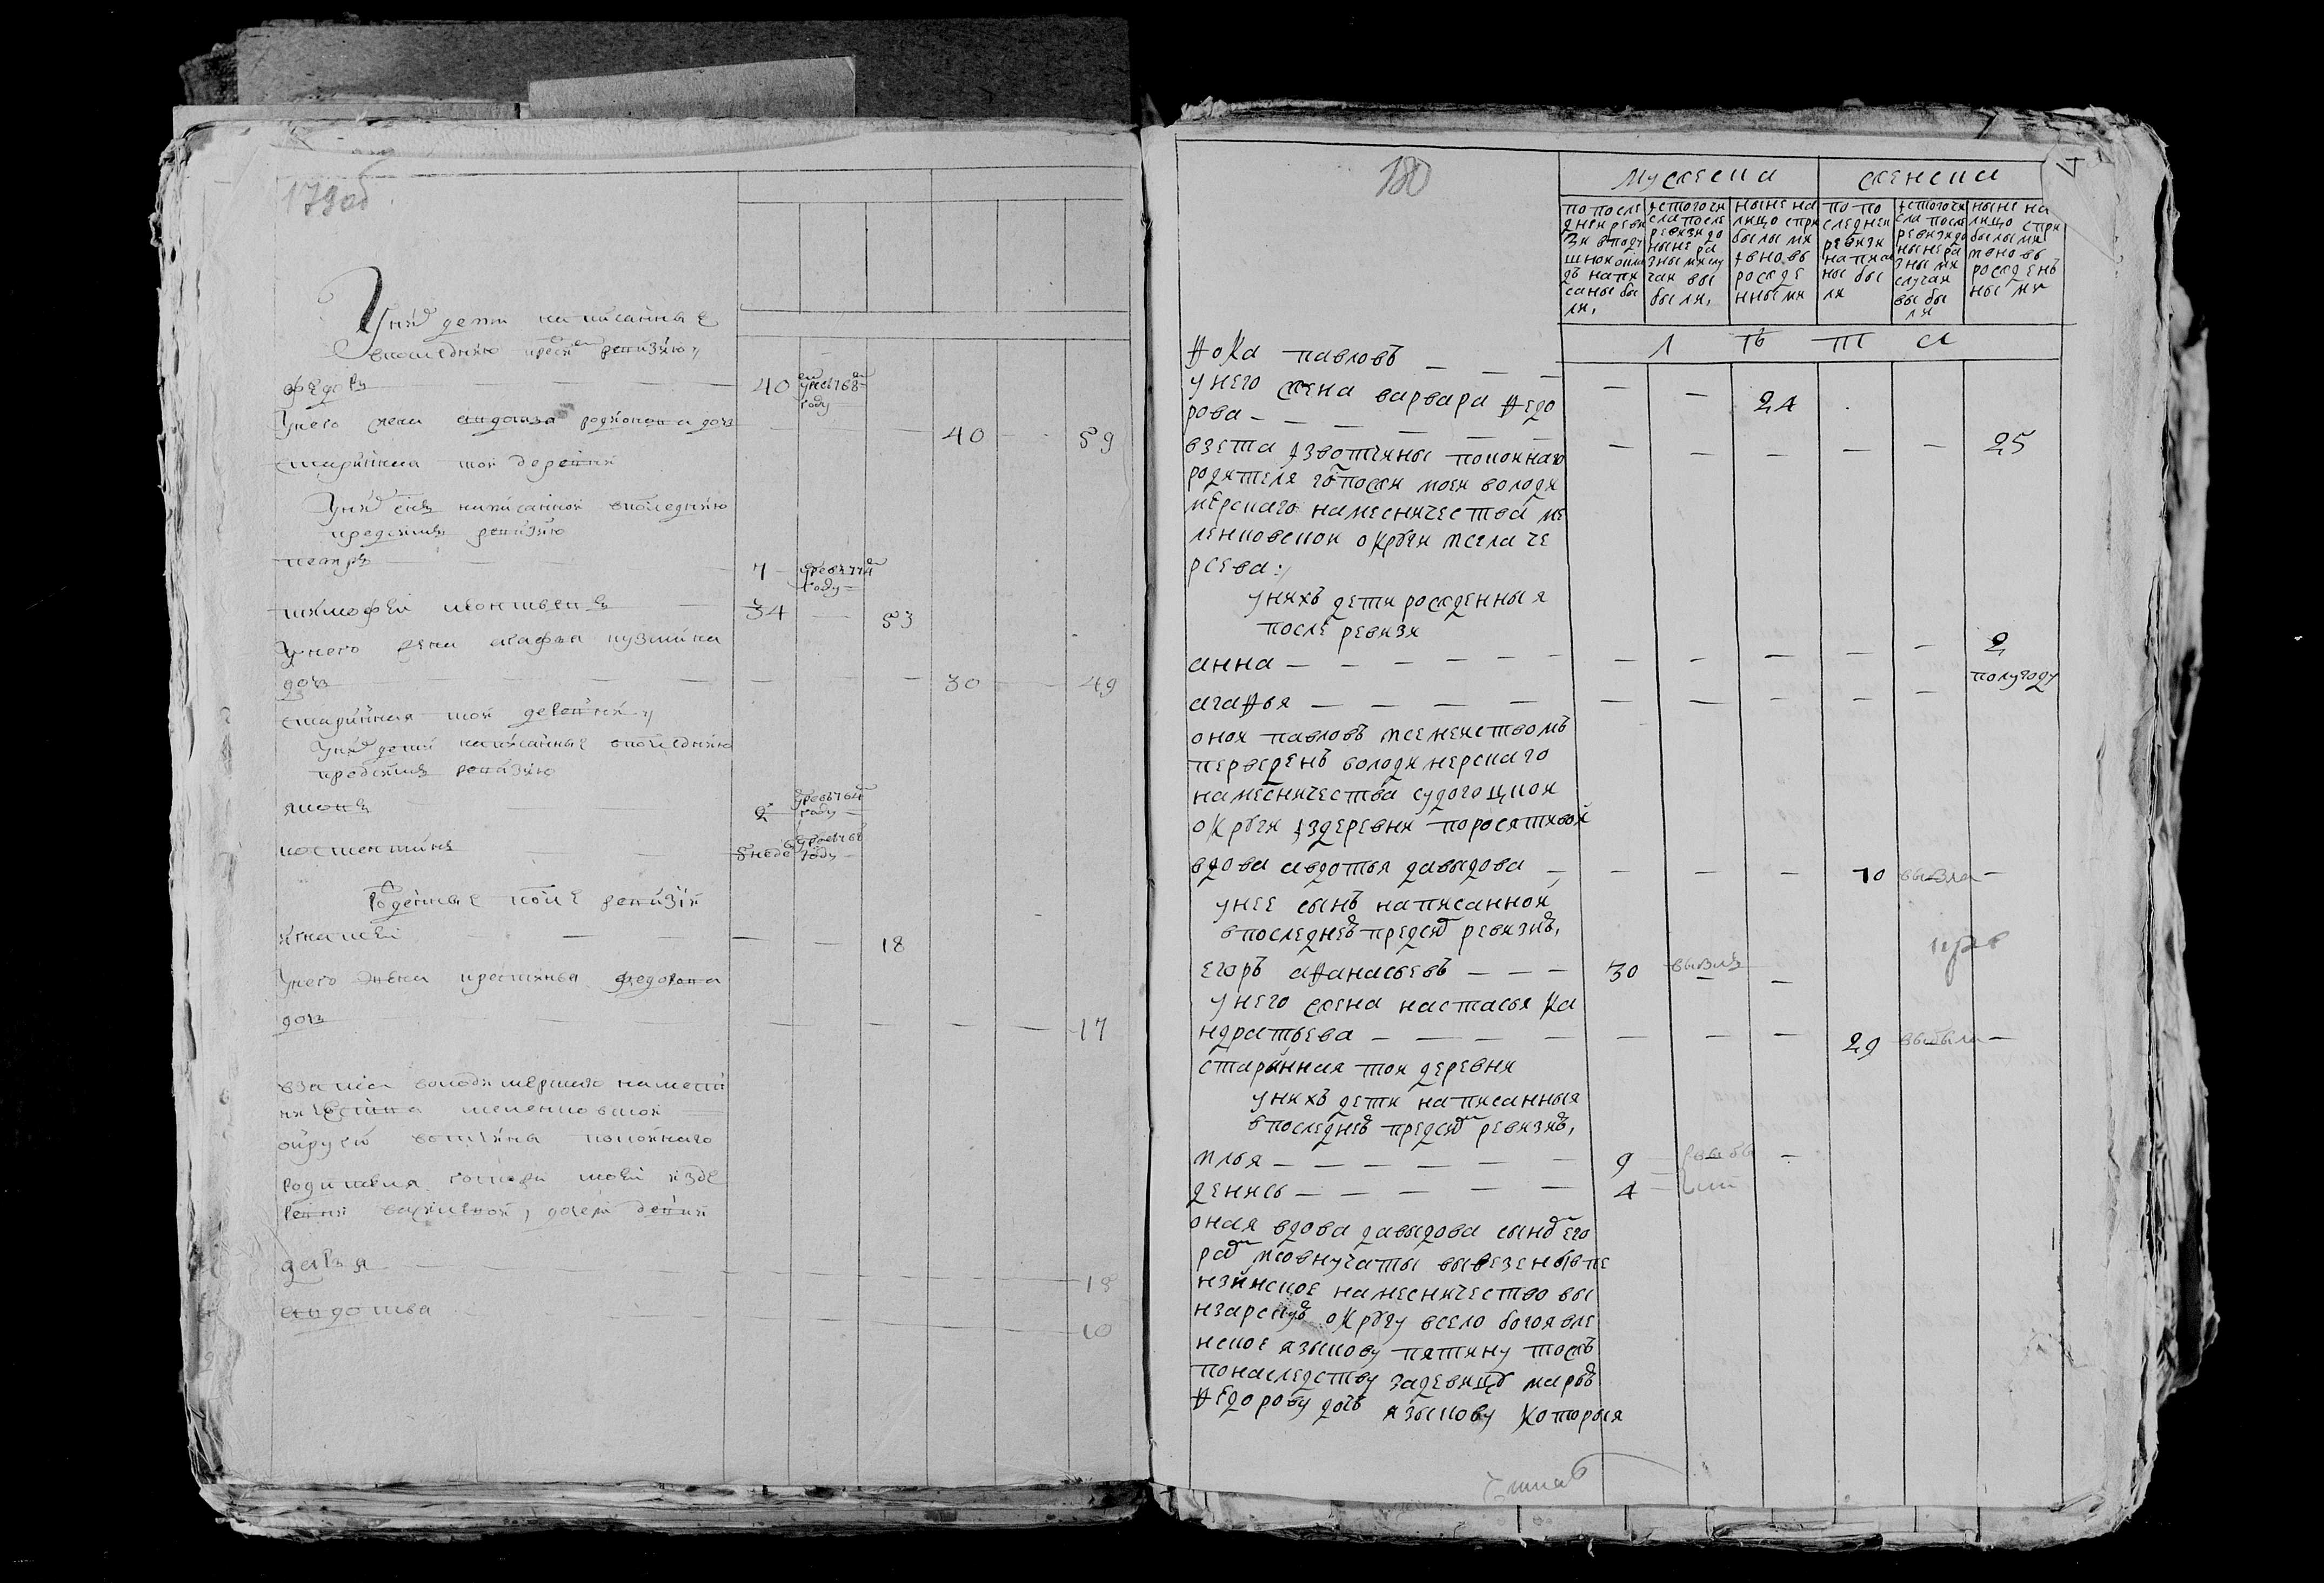 179об
Унихъ дети написанные
впоследнюю пред сим ревизию,
федоръ 40 умре 1768 году
Унего жена авдотья родионова дочь 40 59
старинная той деревни
Унихъ сынъ написанной впоследнюю
предсимъ ревизию
петръ 7 умре 1774 году
тимофей леонтьевъ 34 53
Унего жена агафья кузмина
дочь 30 49
старинная той деревни,
Унихъ дети написанные впоследнюю
предсимъ ревизию
яковъ 2 умре 1764 году
костентинъ 5 неде умре 1768 году
Рожденные после ревизiи
игнатей 18
Унего жена крестинья федорова
дочь 17
взята володимерского наместни
ничества меленковской
округи вотчины покойнаго
родителя гопожи моей изде
ревни , дочери девки
дарья 18
авдотья 10
180
мужеска женска
попосле дней реви зи вподу шной окла дъ напи саны бы ли,
изтогочи сла после ревизи до ныне ра зными слу чаи вы были,
ныне на лицо спри былыми ивновь рожде нными
по по следней ревизи написа ны бы ли
изтогочи сла после ревизи до ныне ра зными случаи вы бы ли
ныне на лицо спри былыми ивновь рожденъ ными
л ѣ т а
фока павловъ — — — — — 24
унего жена варвара федо
рова — — — — — — 25
взета извотчины покойнаго
родителя гопожи моей володи
мерскаго намесничества ме
ленковской округи исела че
ржева:
унихъ дети рожденныя
после ревизи
анна — — — — — — 2
агафья — — — — — — полугоду
оной павловъ исемейством
переведенъ володимерскаго
намесничества судогоцкой
округи издеревни поросятивой
вдова авдотья давыдова — — — — 70 выбыла —
унее сынъ написанной
впоследнею предсим ревизию,
егоръ афанасьевъ — — — 30 выбылъ —
унего жена настасья ка
ндратьева — — — — — 29 выбыла —
старинная той деревни
унихъ дети написанныя
впоследнею предсим ревизию,
илья — — — — — — 9 — выбы —
денисъ — — — — — 4 — ли
оная вдова давыдова сыном его
ром ивнучаты вывезены впе
нзинское намесничество вы
нзарскую округу всело богоявле
нское языкову пятину тожъ
понаследству задевицу марью
федорову дочь языкову которыя